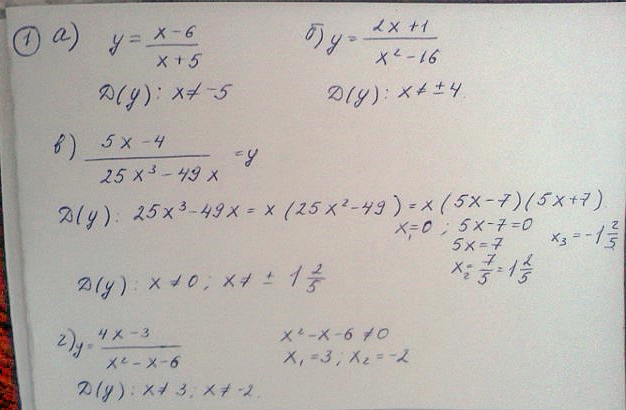 ① а) y = (x-6)/(x+5) б) y = (2x+1)/(x²-16)
D(y): x ≠ -5 D(y): x ≠ ±4.
в) (5x-4)/(25x³-49x) = y
D(y): 25x³-49x = x(25x²-49) = x(5x-7)(5x+7)
x₁=0; 5x-7=0
5x=7 x₃=-1 2/5
x₂=7/5=1 2/5
D(y): x ≠ 0; x ≠ ± 1 2/5
г) y = (4x-3)/(x²-x-6) x²-x-6 ≠ 0
x₁=3; x₂=-2
D(y): x ≠ 3; x ≠ -2.